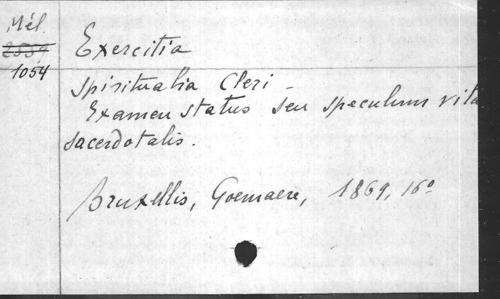 Mél.
2559
1054
Exercitia
Spiritualia Cleri -
Examen status seu speculum vita
sacerdotalis.
Bruxellis, Goemaere, 1869, 16º